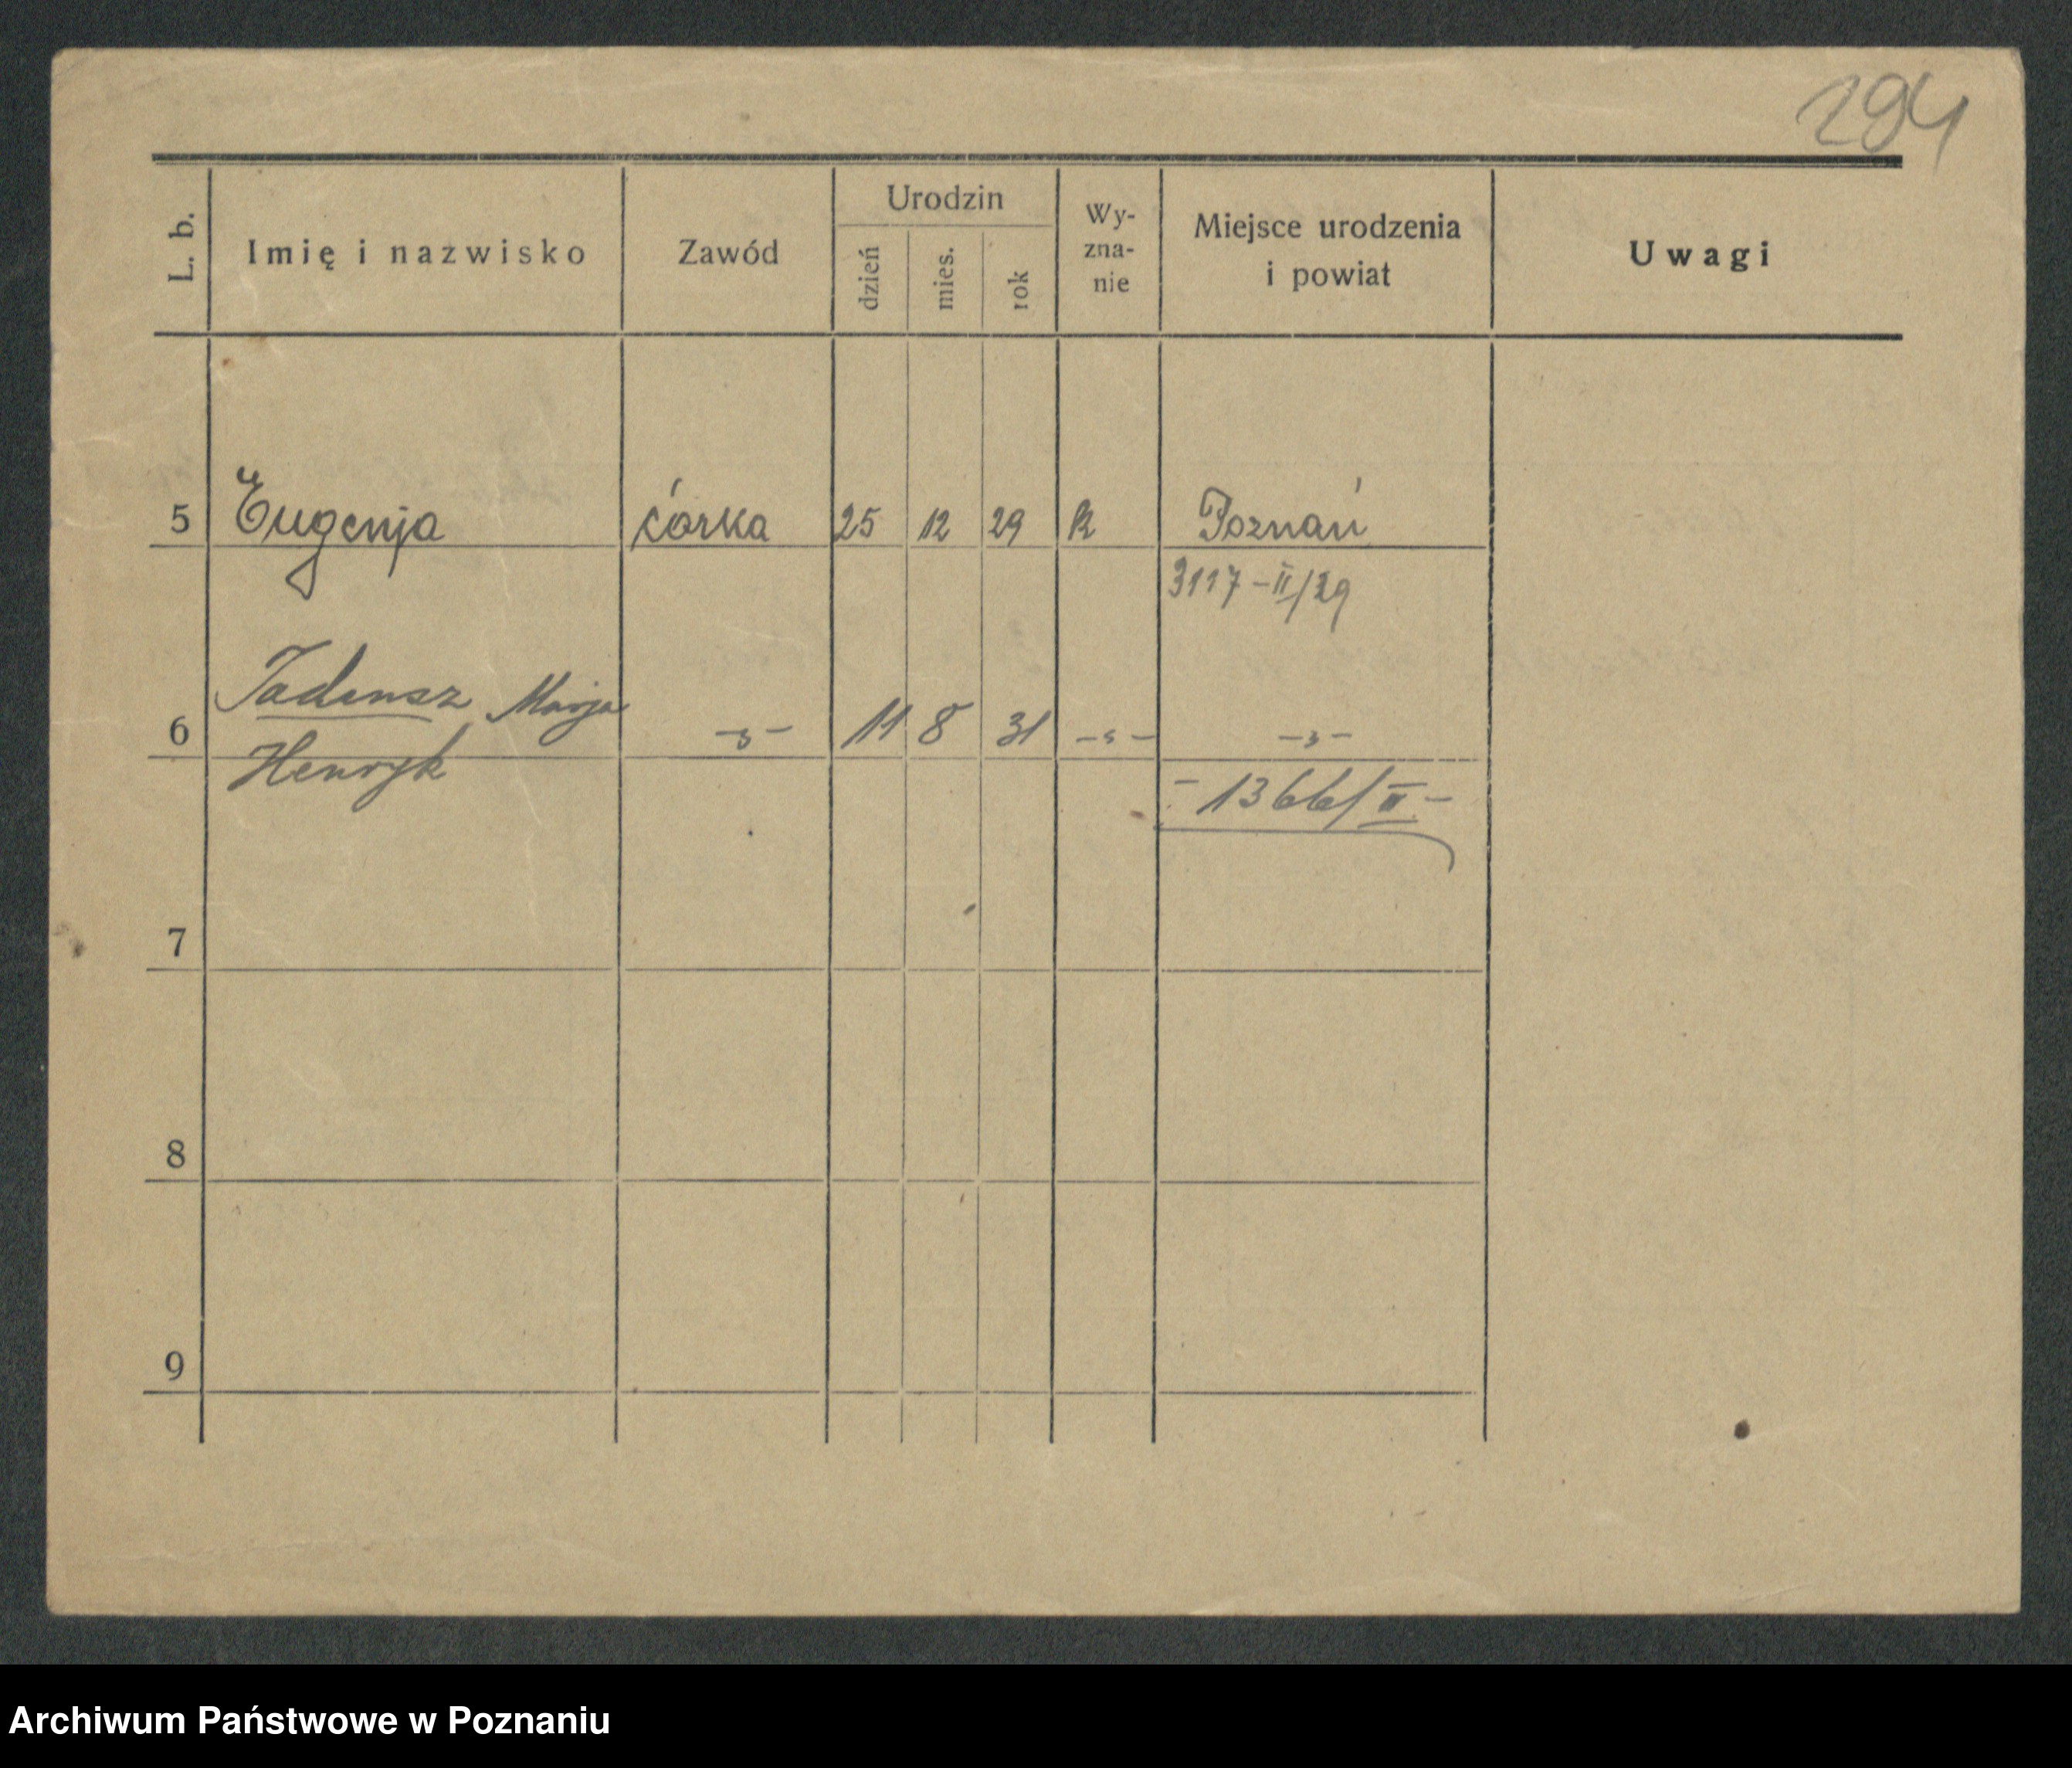 294
L. b. Imię i nazwisko Zawód Urodzin dzień mies. rok Wy-zna-nie Miejsce urodzenia i powiat Uwagi
5 Eugenja córka 25 12 29 R Poznań
3117-II/29
Tadeusz Marja
6 -„- 11 8 31 -„- -„-
Henryk
- 1366/II -
7
8
9
Archiwum Państwowe w Poznaniu